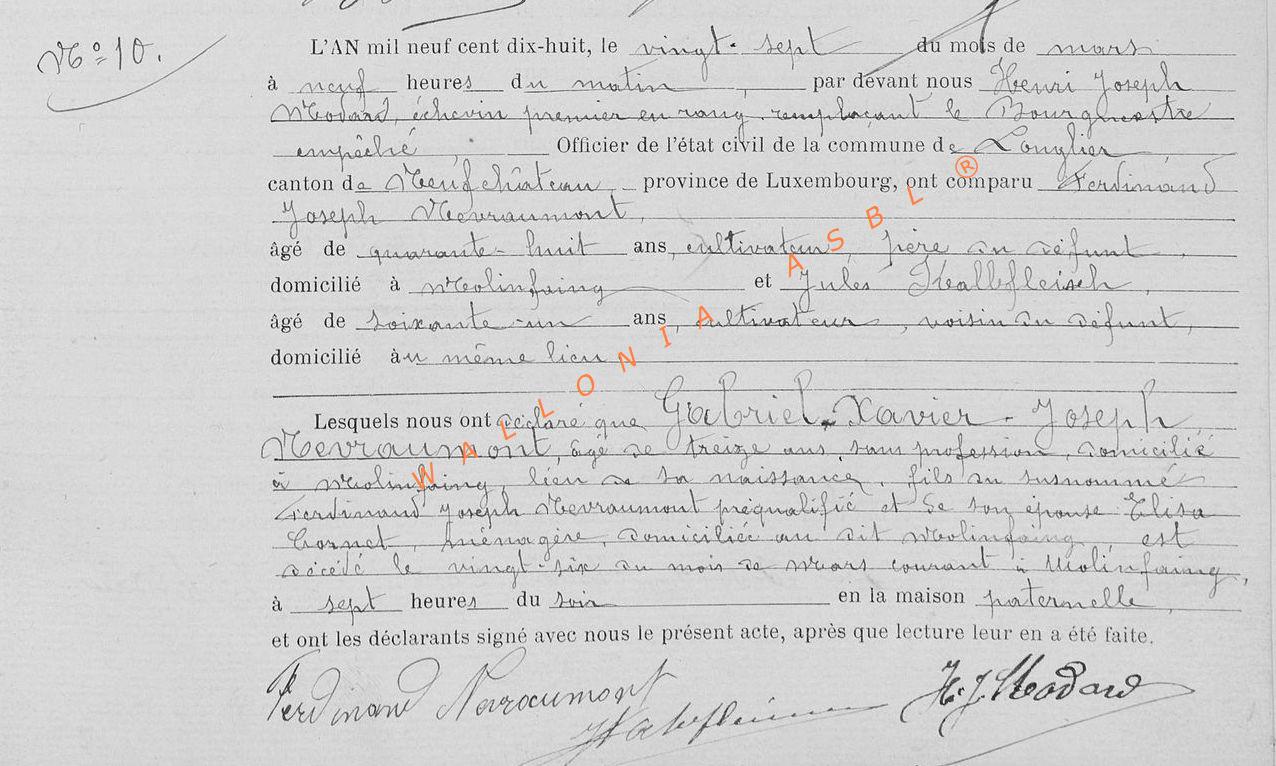 N° 10.
L'AN mil neuf cent dix-huit, le vingt-sept du mois de mars
à neuf heures du matin, par devant nous Henri Joseph
Modard, échevin premier en rang, remplaçant le Bourgmestre
empêché, Officier de l'état civil de la commune de Longlier,
canton de Neufchâteau, province de Luxembourg, ont comparu Ferdinand
Joseph Nevraumont,
âgé de quarante-huit ans, cultivateur, père du défunt,
domicilié à Molinfaing et Jules Kalbfleisch,
âgé de soixante-un ans, cultivateur, voisin du défunt,
domicilié au même lieu
Lesquels nous ont déclaré que Gabriel-Xavier-Joseph
Nevraumont, âgé de treize ans, sans profession, domicilié
à Molinfaing, lieu de sa naissance, fils du susnommé
Ferdinand Joseph Nevraumont préqualifié et de son épouse Elisa
Cornet, ménagère, domiciliée au dit Molinfaing, est
décédé le vingt-six du mois de Mars courant à Molinfaing,
à sept heures du soir en la maison paternelle,
et ont les déclarants signé avec nous le présent acte, après que lecture leur en a été faite.
Ferdinand Nevraumont
H. J. Modard
WALLONIA ASBL ®